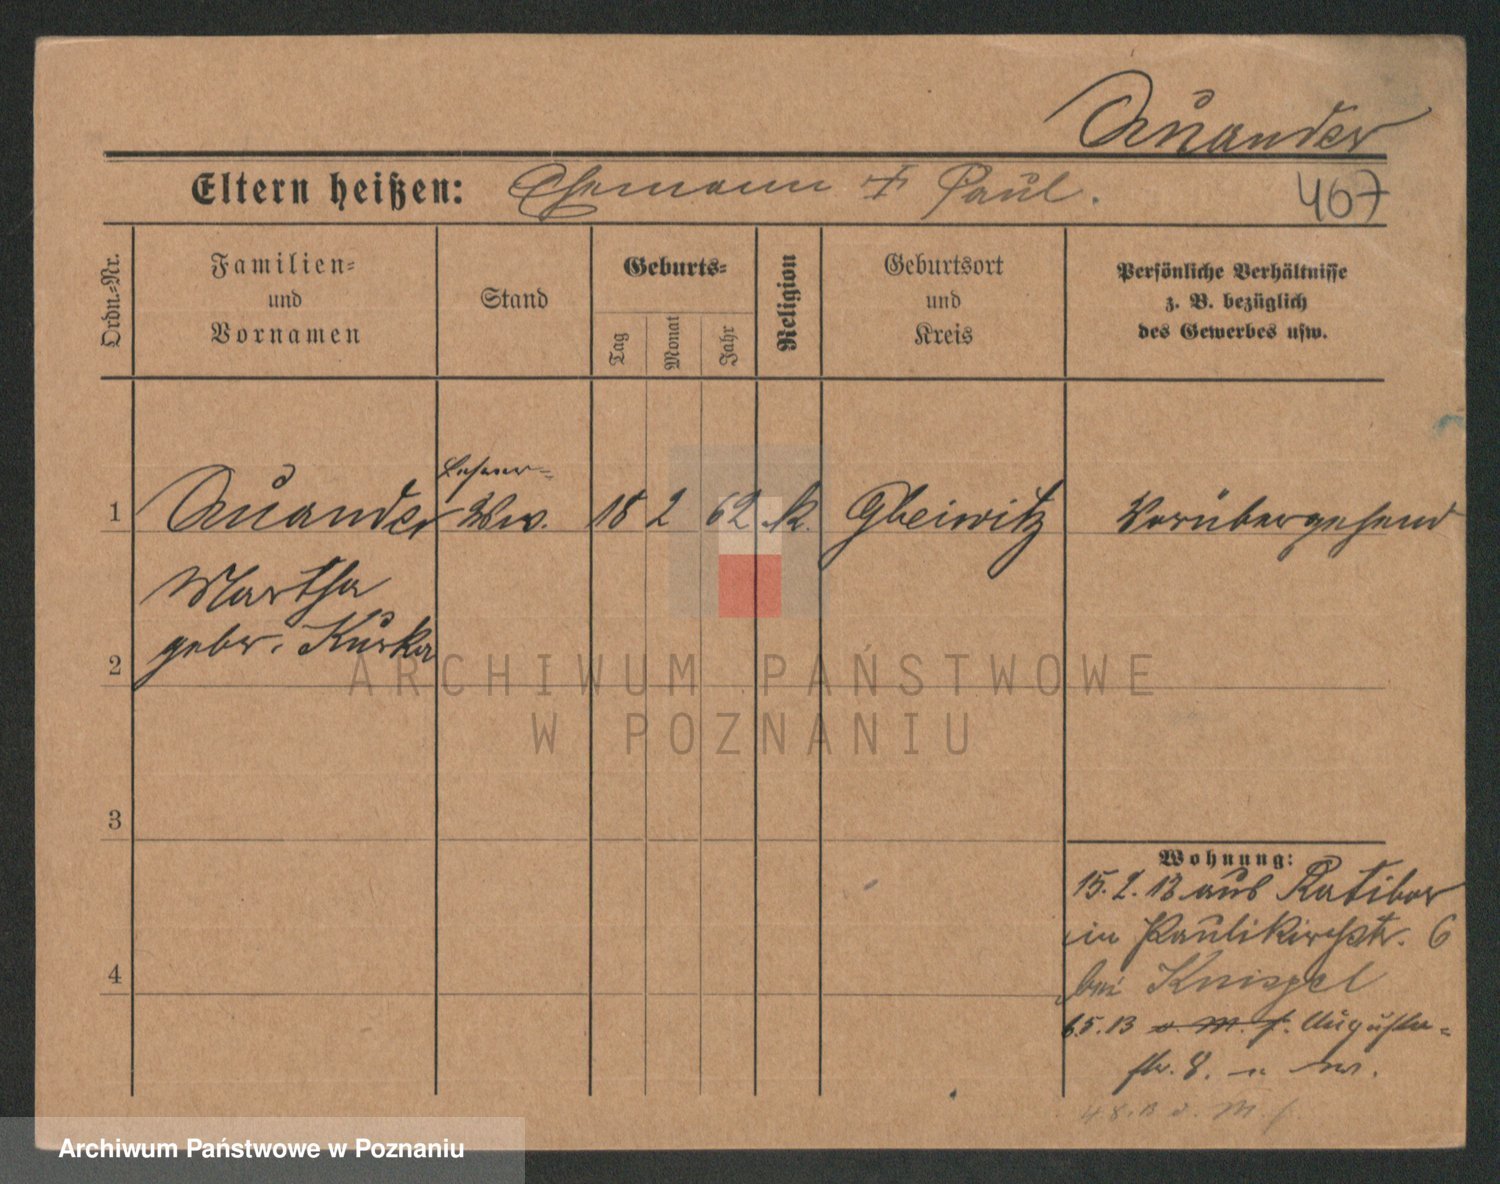 Quander
Eltern heißen: Ehemann + Paul.
467
Ordn.-Nr.
Familien-
und
Vornamen
Stand
Geburts-
Tag
Monat
Jahr
Religion
Geburtsort
und
Kreis
Persönliche Verhältnisse
z. B. bezüglich
des Gewerbes usw.
Lehrer-
1 Quander Ww. 18 2 62 k. Gleiwitz Vorübergehend
Martha
gebor. Kurka
2
ARCHIWUM PAŃSTWOWE
W POZNANIU
3
Wohnung:
15.2.13 aus Ratibor
in Paulikirchstr. 6
bei Knispel
6.5.13 v. M. f. Augusta-
str. 8.
4
4.8.13 v. M. f.
Archiwum Państwowe w Poznaniu